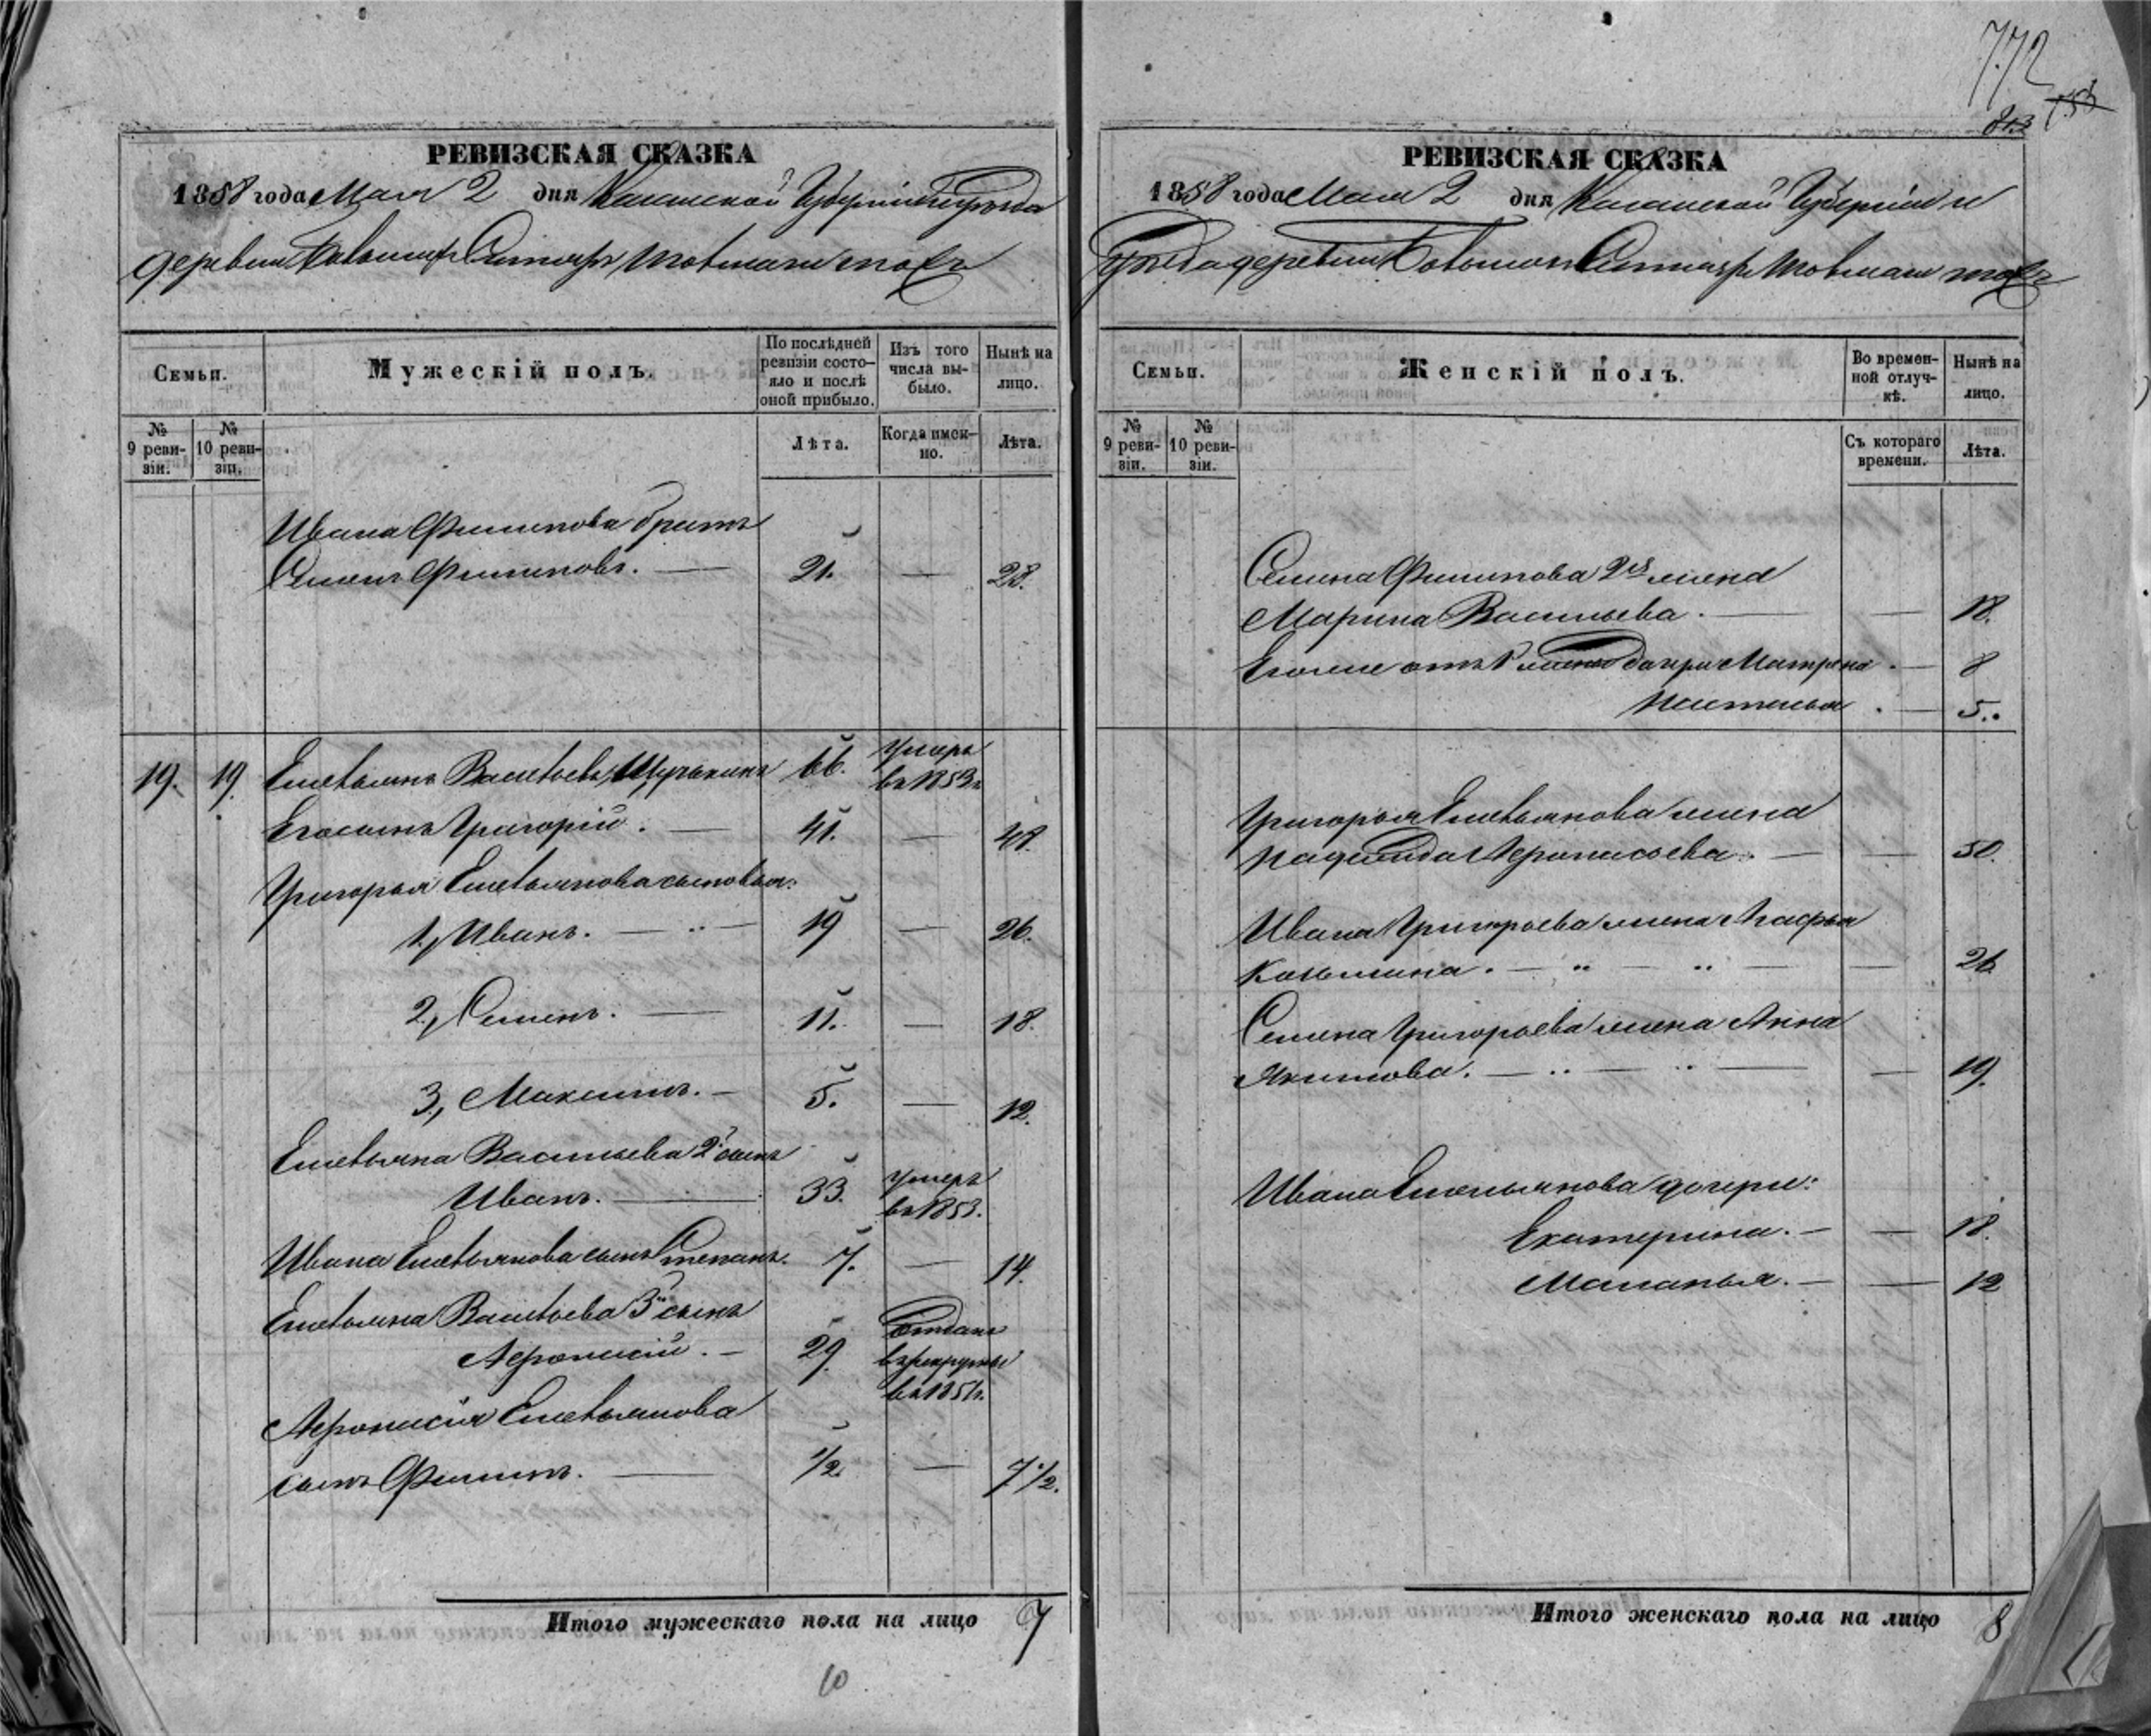 772
813 753
РЕВИЗСКАЯ СКАЗКА
1858 года Мая 2 дня Казанской Губерніи и уѣзда
деревни тожъ
Семьи.
Мужескій полъ.
По послѣдней ревизіи состояло и послѣ оной прибыло.
Изъ того числа выбыло.
Нынѣ на лицо.
№ 9 ревизіи.
№ 10 ревизіи.
Лѣта.
Когда именно.
Лѣта.
Ивана Филипова братъ
Семенъ Филиповъ. — 21. — 28.
19. 19. Емельянъ Васильевъ 66. умеръ въ 1853 г
Его сынъ Григорій. — 41. — 48.
Григорья Емельянова сыновья:
1, Иванъ. — 19 — 26.
2, Семенъ. — 11. — 18.
3, Максимъ. — 5. — 12.
Емельяна Васильева 2й сынъ
Иванъ. — 33. умеръ въ 1853.
Ивана Емельянова сынъ Степанъ. 7. — 14.
Емельяна Васильева 3й сынъ
Афонасій. — 29. отданъ въ рекруты въ
Афонасія Емельянова
сынъ Филипъ. — 1/2. — 7 1/2.
Итого мужескаго пола на лицо 7
10
РЕВИЗСКАЯ СКАЗКА
1858 года Мая 2 дня Казанской Губерніи и
уѣзда деревни тожъ
Семьи.
Женскій полъ.
Во временной отлучкѣ.
Нынѣ на лицо.
№ 9 ревизіи.
№ 10 ревизіи.
Съ котораго времени.
Лѣта.
Семена Филипова 2я жена
Марина Васильева. — — 18.
Его же отъ 1 жены дочери Матрена. — 8
Настасья. — 5.
Григорья Емельянова жена
Надежда Афонасьева. — — 50.
Ивана Григорьева жена Агафья
Козьмина. — — 26
Семена Григорьева жена Анна
Якимова. — — 19.
Ивана Емельянова дочери:
Екатерина. — — 18.
Маланья. — — 12
Итого женскаго пола на лицо 8